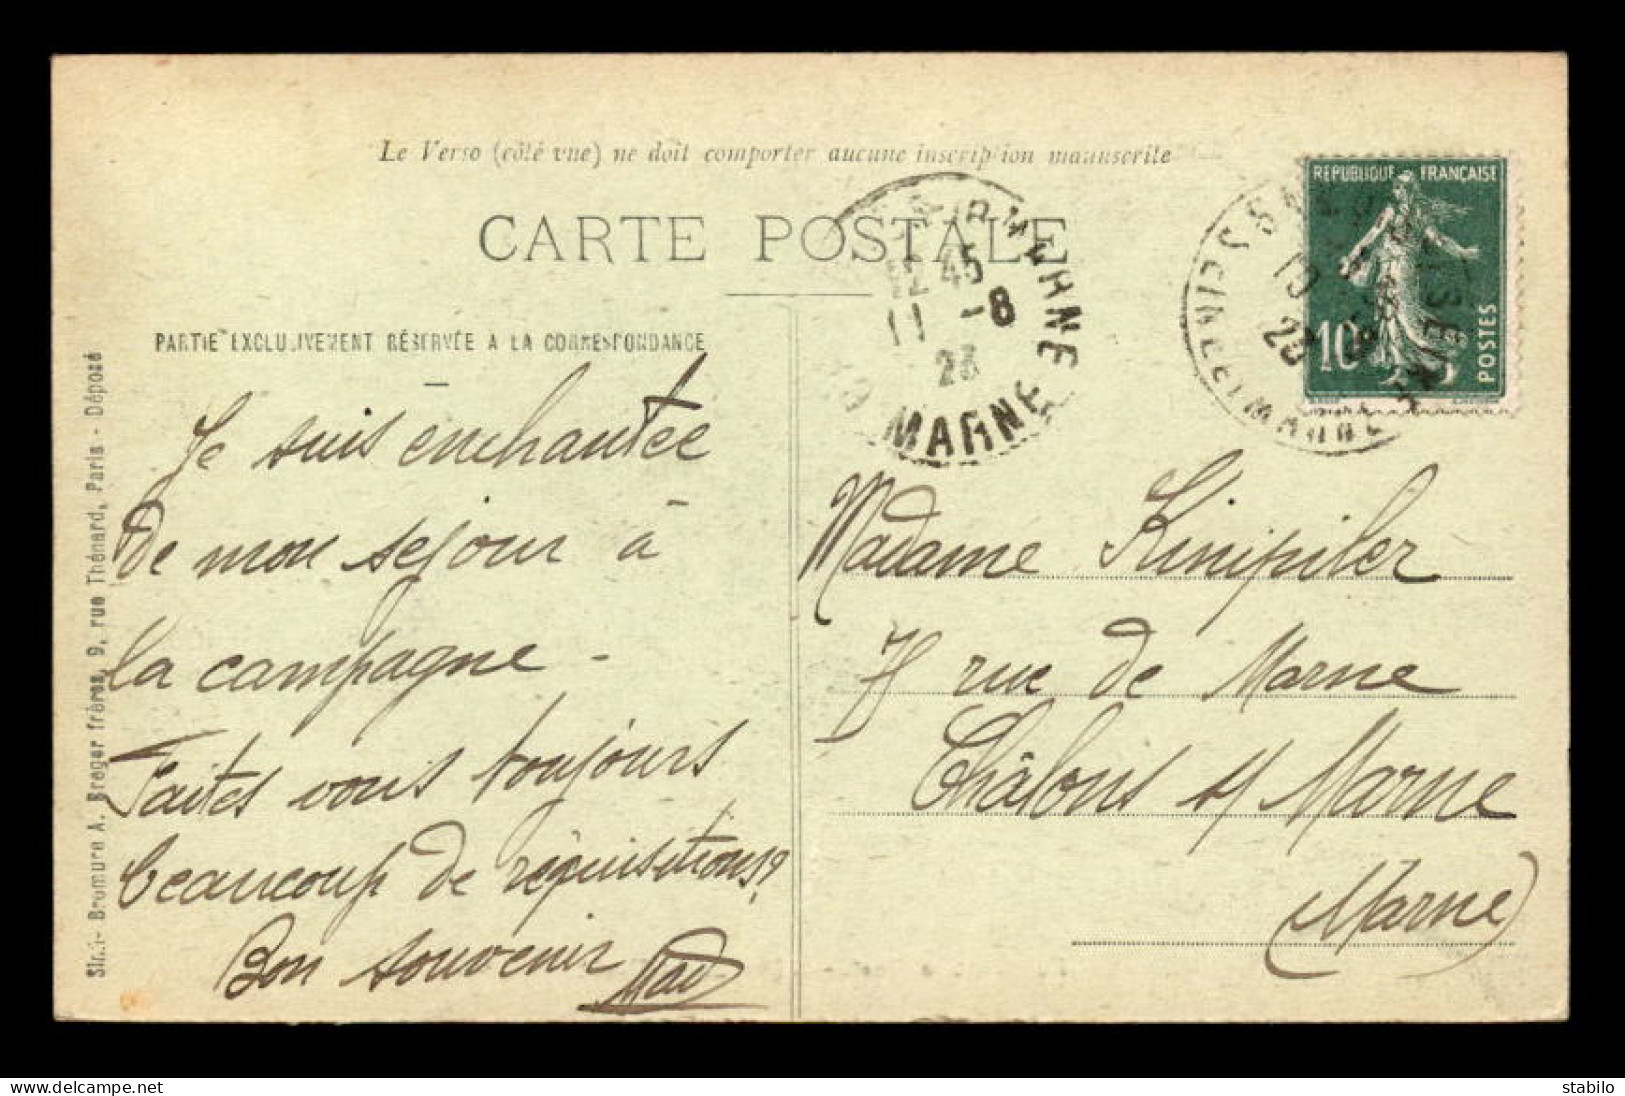 Le Verso (côté vue) ne doit comporter aucune inscription manuscrite
CARTE POSTALE
PARTIE EXCLUSIVEMENT RÉSERVÉE A LA CORRESPONDANCE
Je suis enchantée
de mon sejour à
la campagne -
Faites vous toujours
beaucoup de réquisitions?
Bon souvenir
Bromure A. Breger frères, 9, rue Thénard, Paris - Déposé
12 45
11 -8
23
MARNE
REPUBLIQUE FRANÇAISE
10
POSTES
Madame Kinipiler
rue de Marne
Châlons s/ Marne
(Marne)
delcampe.net
stabilo